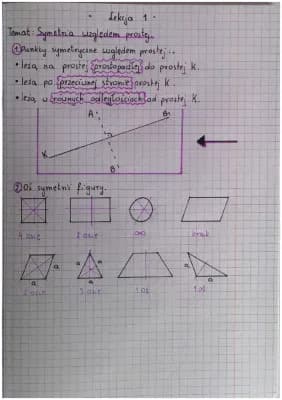 Lekcja 1
Temat: Symetria względem prostej.
① Punkty symetryczne względem prostej...
• leżą na prostej prostopadłej do prostej k.
• leżą po przeciwnej stronie prostej k.
• leżą w równych odległościach od prostej k.
A
K
B'
② Oś symetrii figury.
4 osie 2 osie ∞ brak
a a a a
2 osie 3 osie 1 oś 1 oś